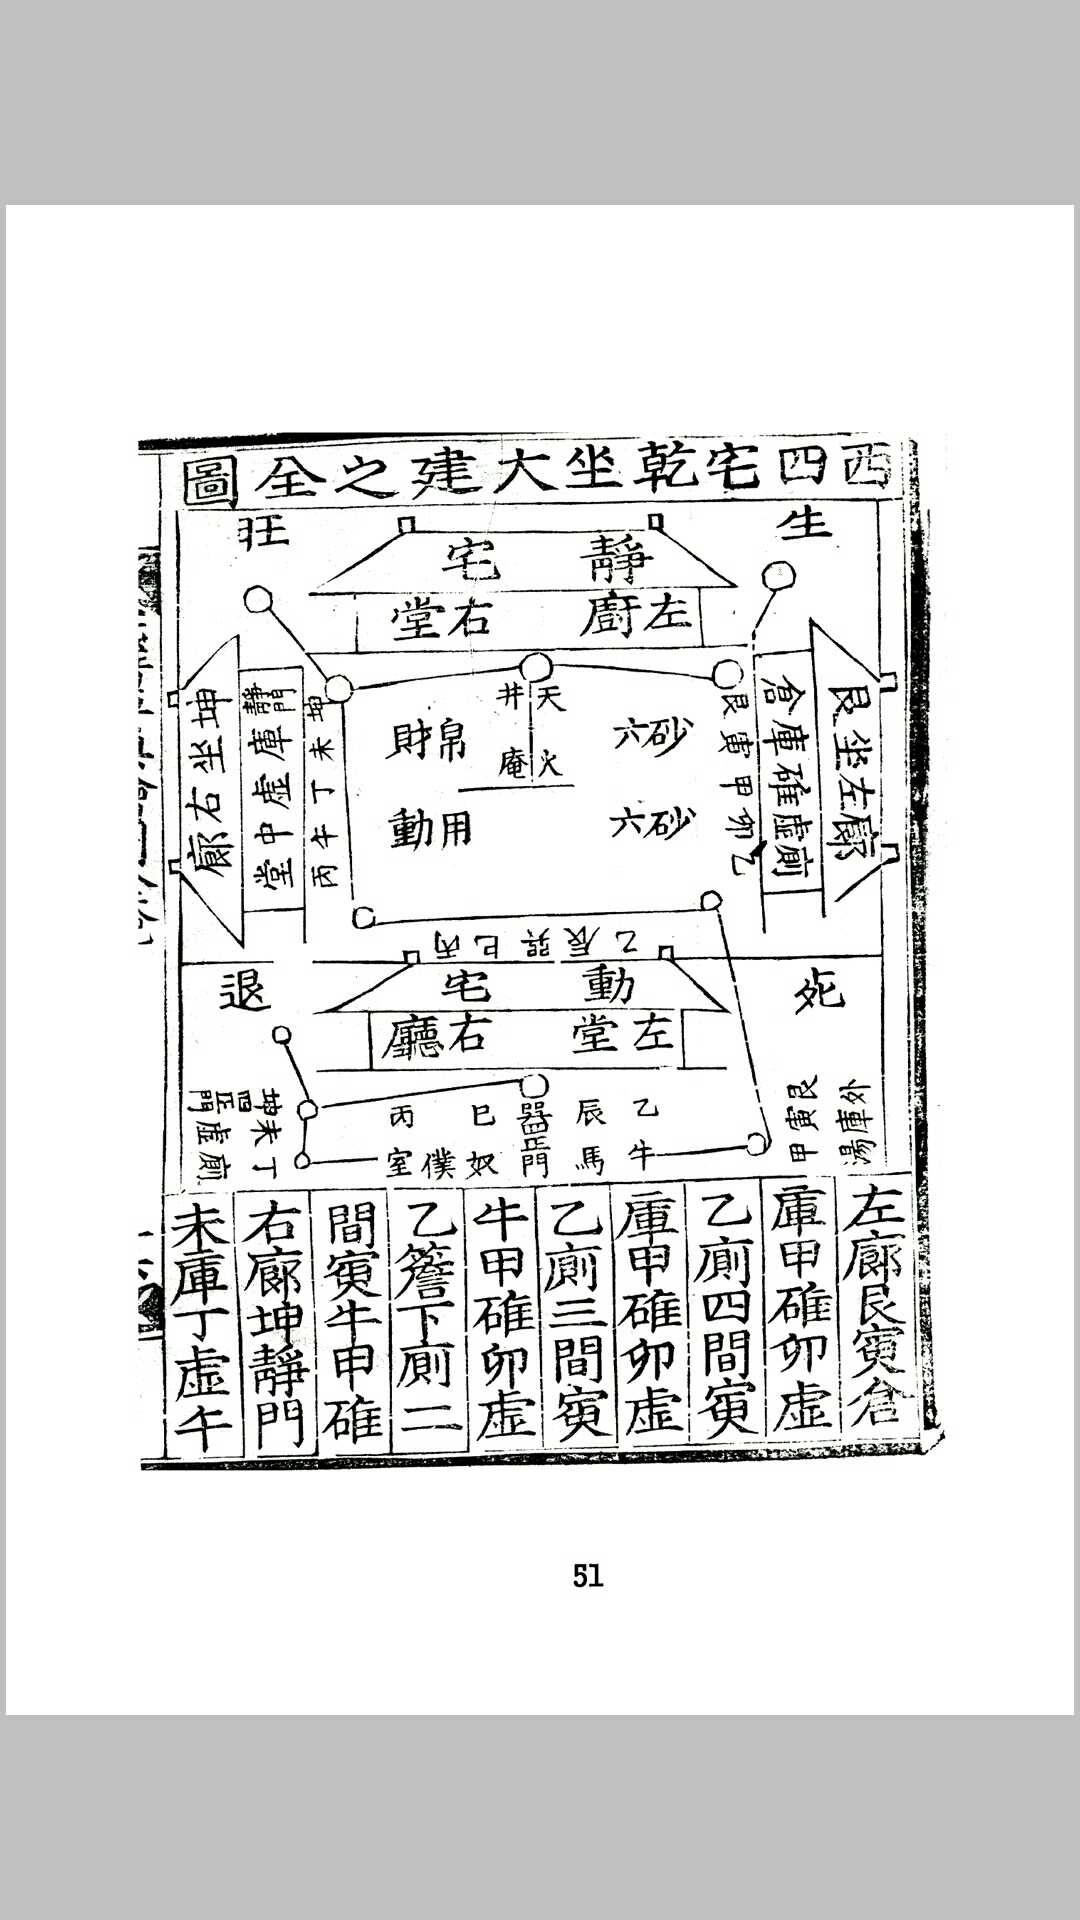 西四宅乾坐大建之全圖
生
旺
靜宅
左廚右堂
艮坐左廊
倉庫碓虛廁
艮寅甲卯乙
天井
火庵
六砂
六砂
財帛
動用
坤未丁午丙
靜門庫虛中堂
坤坐右廊
乙辰巽巳丙
動宅
左堂右廳
死
退
外庫湯
艮寅甲
乙辰巳丙
牛馬門奴僕室
坤未丁
門虛廁
左廊艮寅倉
庫甲碓卯虛
乙廁四間寅
庫甲碓卯虛
乙廁三間寅
牛甲碓卯虛
乙簷下廁二
間寅牛甲碓
右廊坤靜門
未庫丁虛午
51